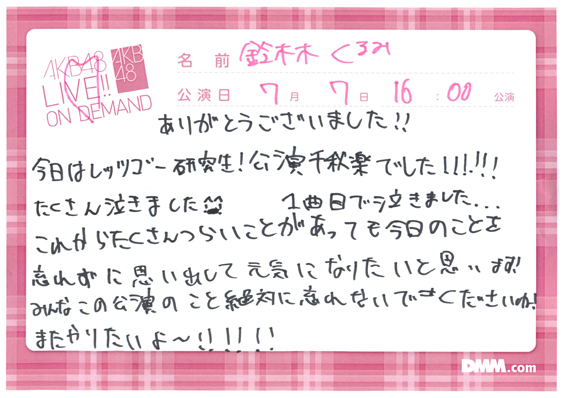 AKB48
LIVE!!
ON DEMAND
AKB
48
名前 鈴木 くるみ
公演日 7月 7日 16:00 公演
ありがとうございました!!
今日はレッツゴー研究生!公演千秋楽でした!!!!!
たくさん泣きました 1曲目で泣きました...
これからたくさんつらいことがあっても今日のことを
忘れずに思い出して元気になりたいと思います!
みんなこの公演のこと絶対に忘れないでくださいね!
またやりたいよ〜!!!!
DMM.com